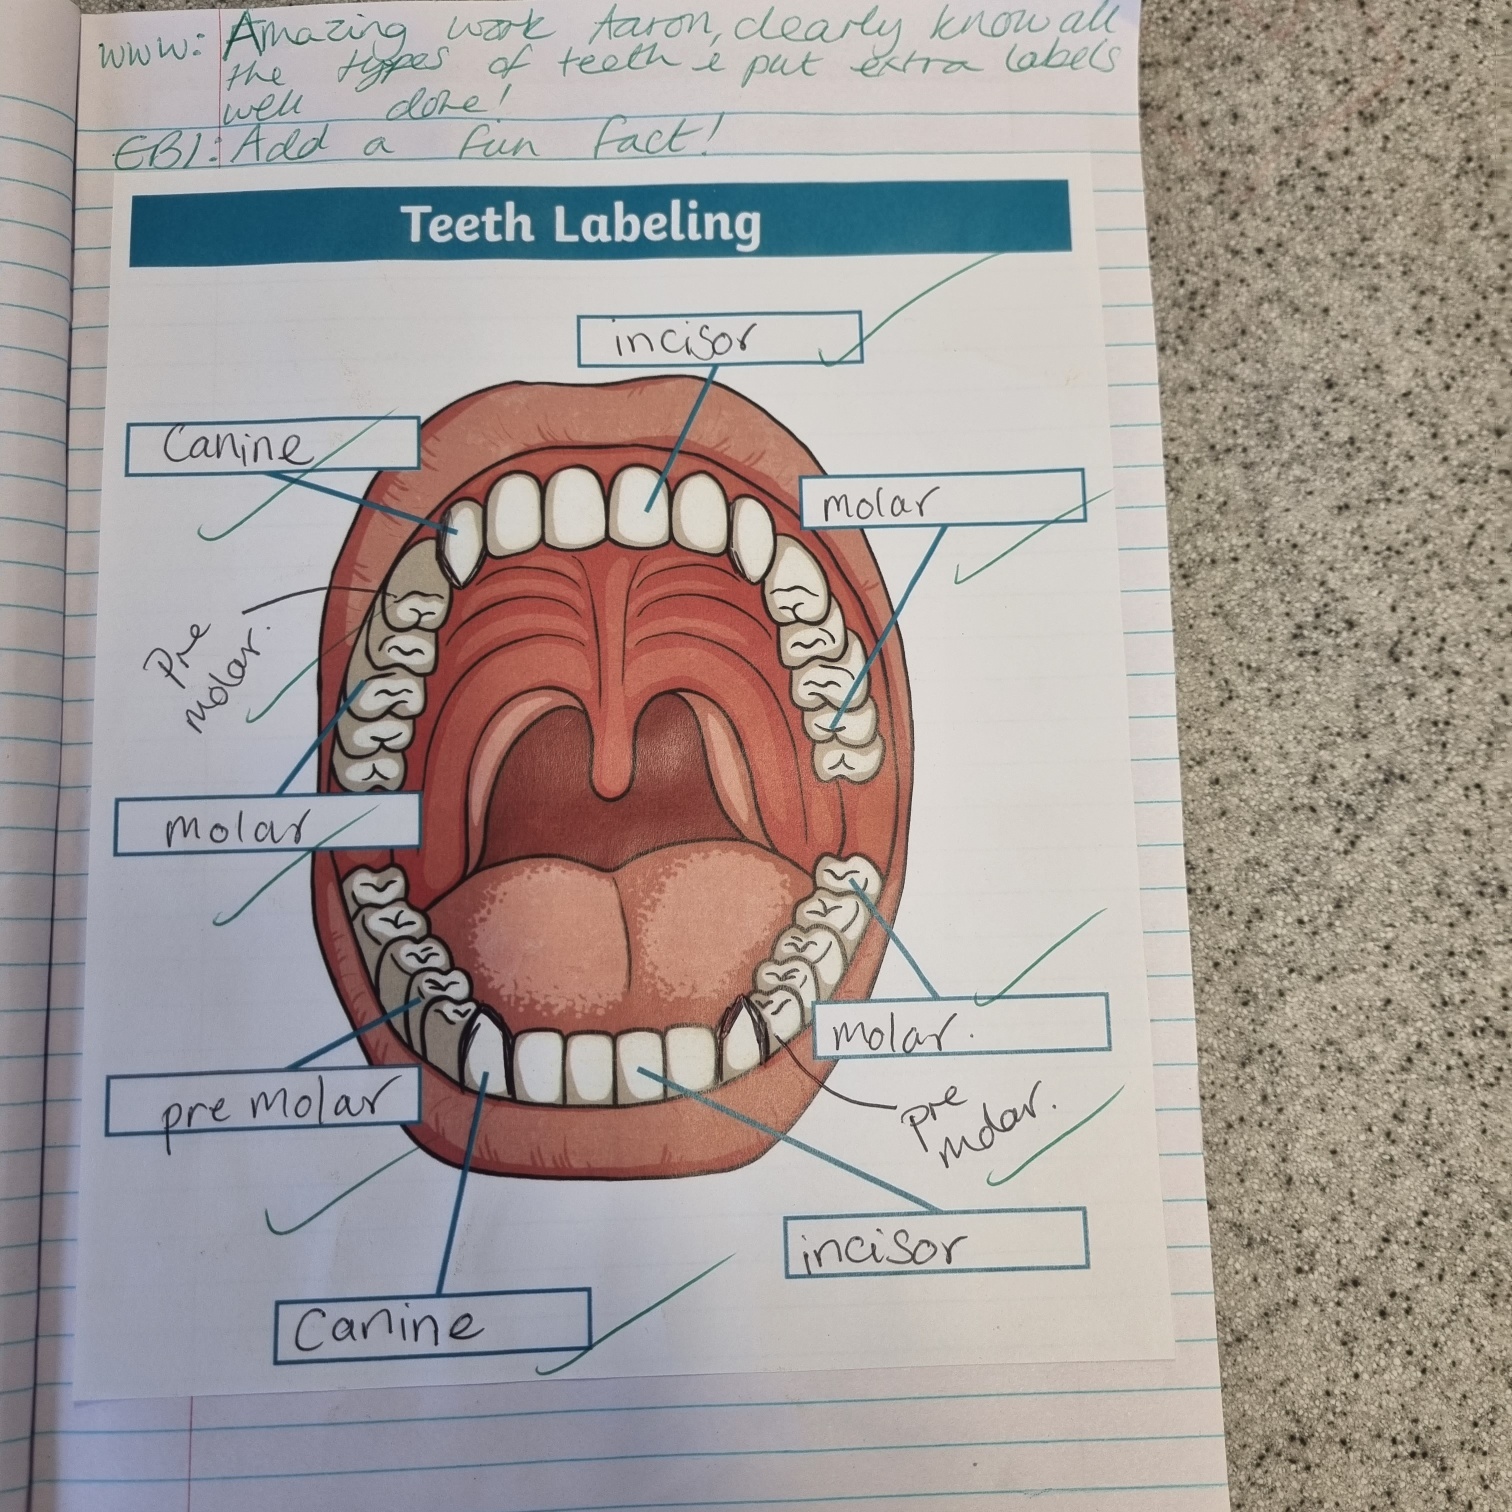 www: Amazing work Aaron, clearly know all
the types of teeth & put extra labels
well done!
EBI: Add a fun fact!
Teeth Labeling
incisor
Canine
molar
Pre
molar.
molar
molar.
pre molar
pre
molar.
incisor
Canine